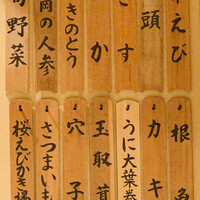 えび
頭
す
か
きのとう
の人参
野菜
根
カキ
うに大葉巻
玉取茸
穴子
さつまいも
桜えびかき揚